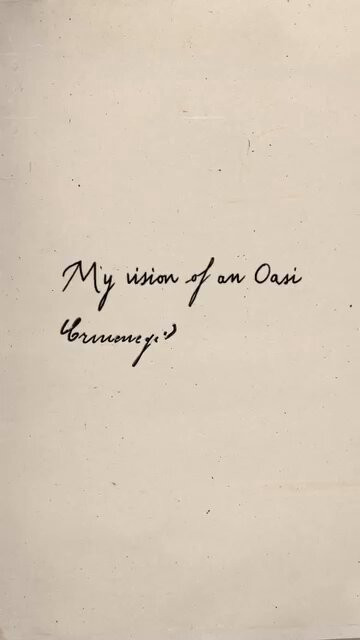 My vision of an Oasi
Ermenegi